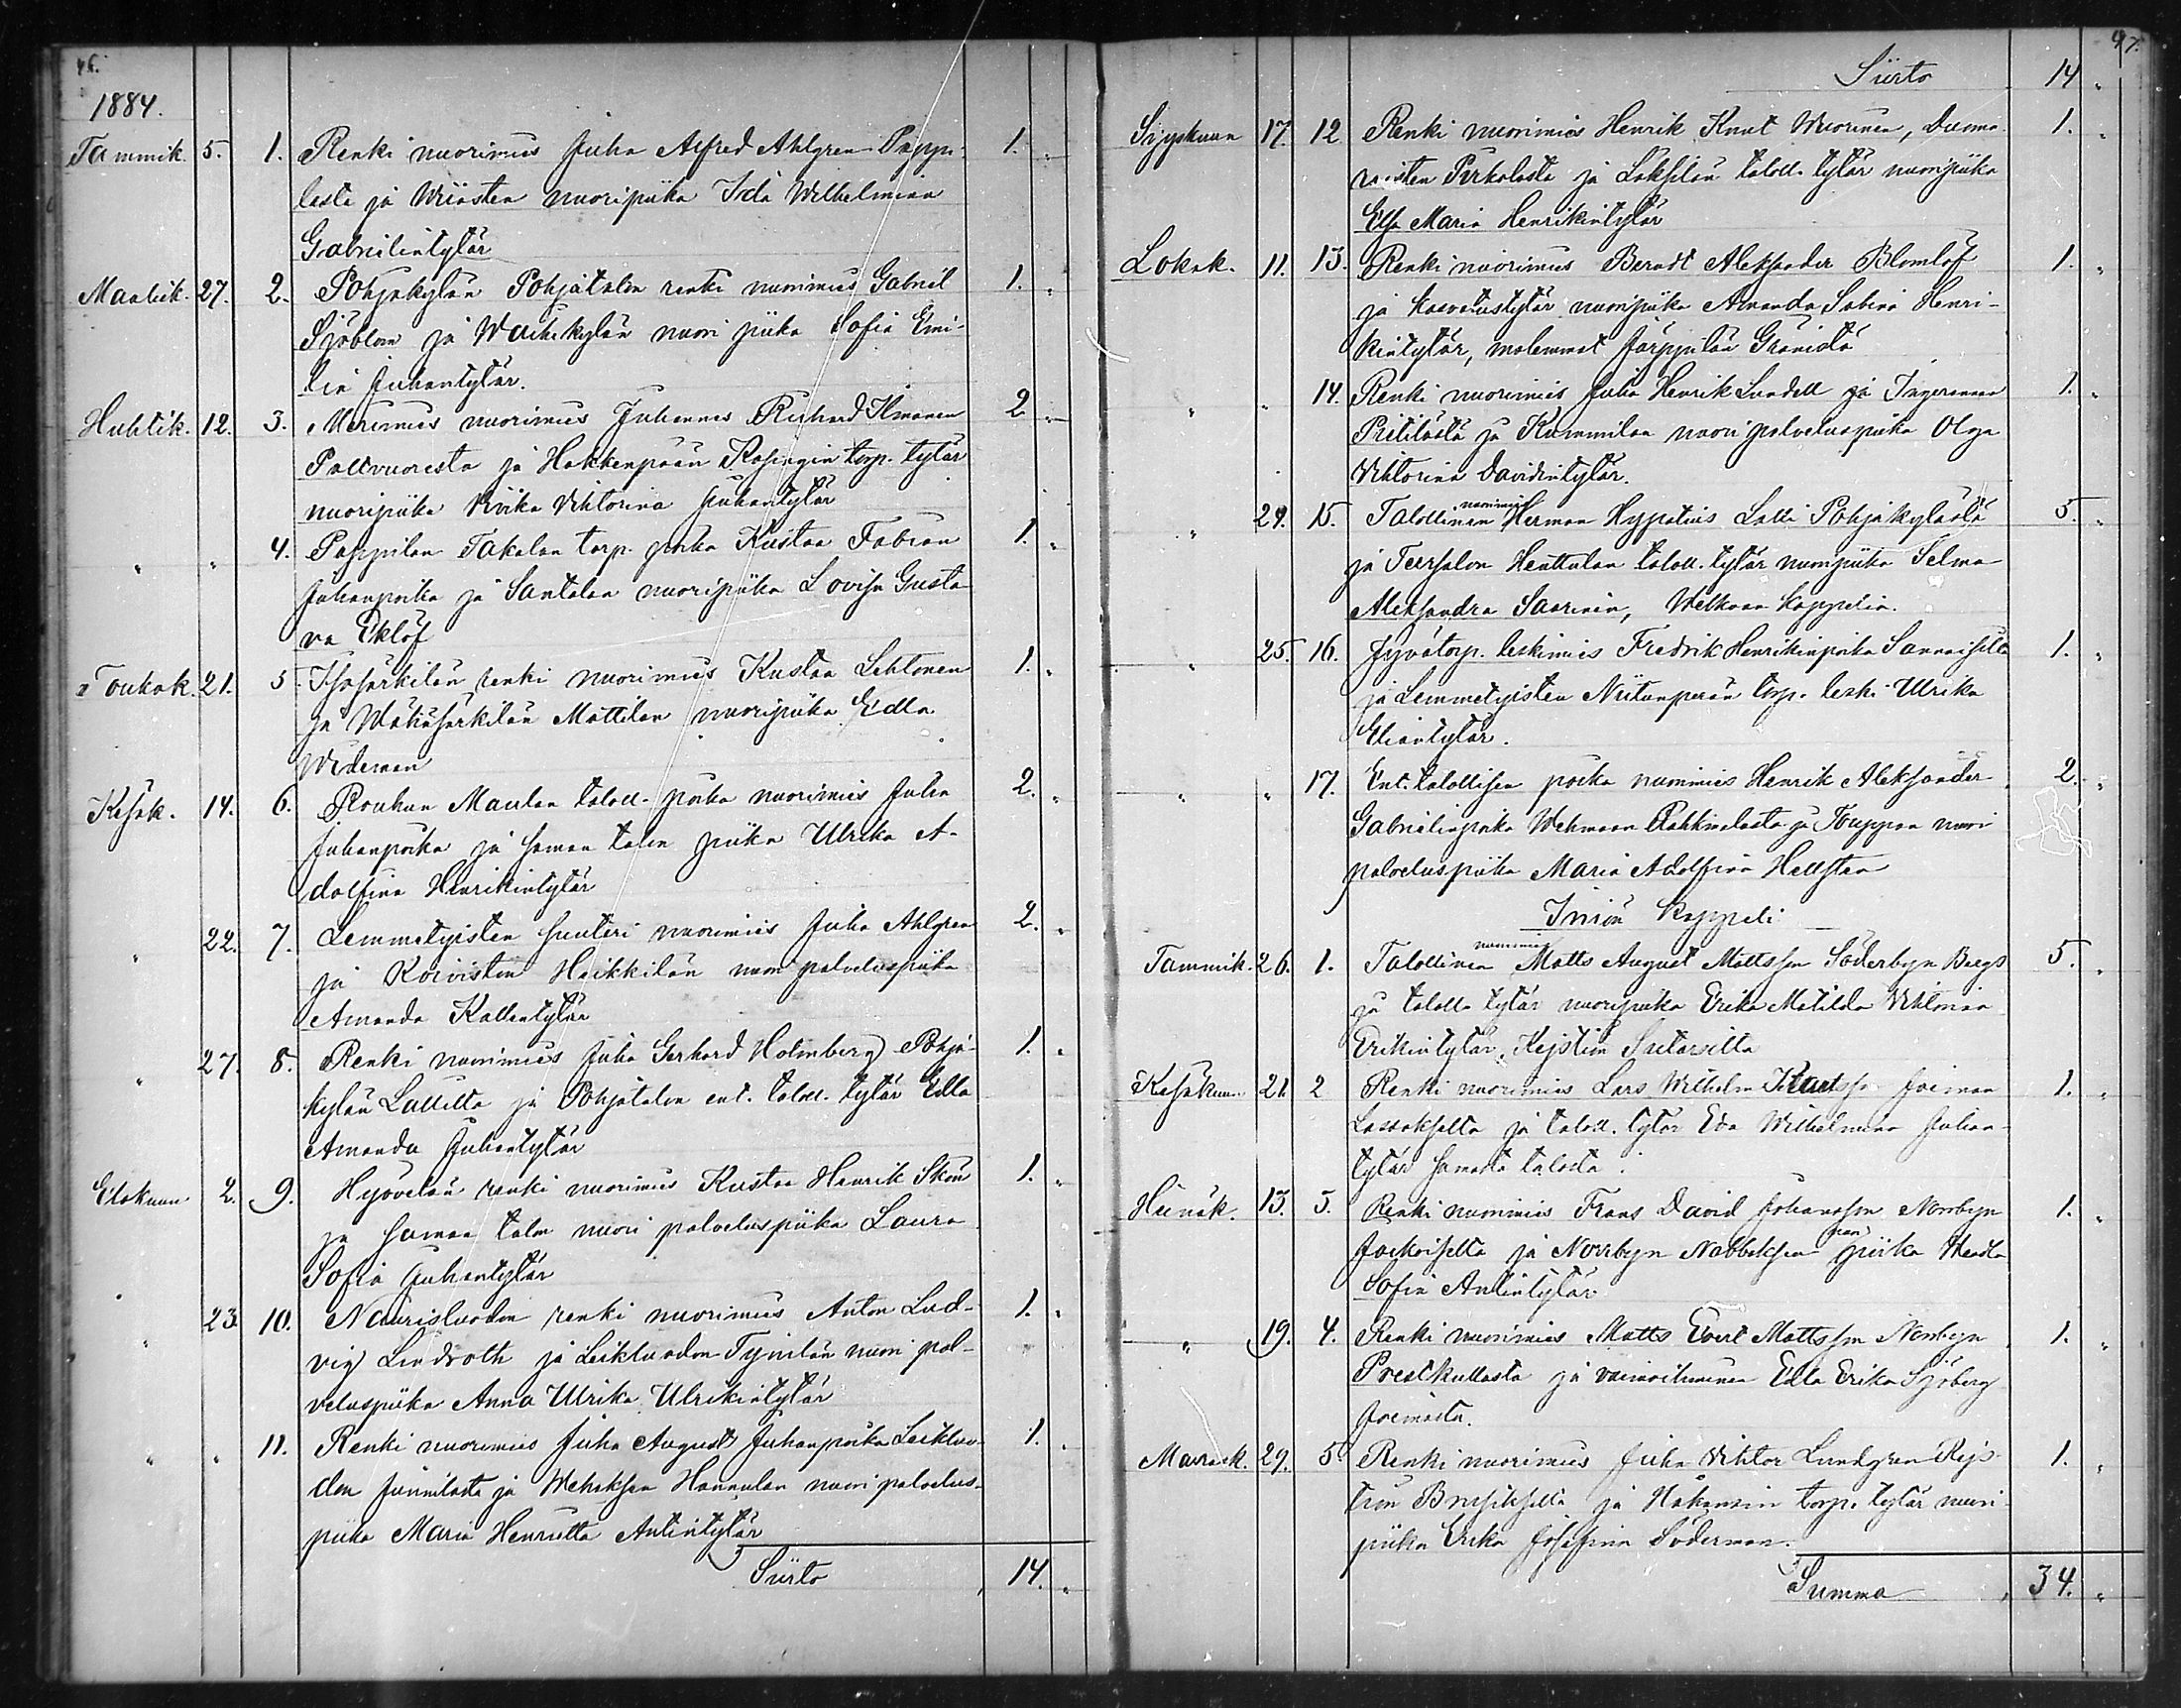 46.
1884.
Tammik. 5. 1. Renki nuorimies Juha Alfred Ahlgren Pappi- 1. "
lasta ja Wriiosten nuoripiika Ida Wilhelmiina
Gabrielintytär
Maalisk. 27. 2. Pohjakylän Pohjatalon renki nuorimies Gabriel 1. "
Sjöblom ja nuori piika Sofia Emi-
lia Juhantytär.
Huhtik. 12. 3. Merimies nuorimies Johannes Richard Ilmanen 2 "
Palsvuoresta ja Hakkenpään torp. tytär
nuoripiika Viktoriina Juhantytär
" " 4. Pappilan Takalan torp. poika Kustaa Fabian 1. "
Juhanpoika ja Santalan nuoripiika Lovisa Gusta-
va Eklöf
Toukok. 21. 5. Isosärkilän renki nuorimies Kustaa Lehtonen 1. "
ja Wähäsärkilän Mattilan nuoripiika Edla
Wideman
Kesäk. 14. 6. Rouhun Maulan taloll. poika nuorimies Juha 2. "
Juhanpoika ja saman talon piika Ulrika A-
dolfina Henrikintytär
" 22. 7. Lemmetyisten suutari nuorimies Juha Ahlgren 2. "
ja Koiviston Heikkilän nuori palveluspiika
Amanda Kallentytär
" 27. 8. Renki nuorimies Juha Gerhard Holmberg Pohja- 1. "
kylän Lallilta ja Pohjatalon ent. taloll. tytär Edla
Amanda Juhantytär
Elokuun 2. 9. Hyövelän renki nuorimies Kustaa Henrik Skön 1. "
ja saman talon nuori palveluspiika Laura
Sofia Juhantytär
" 23. 10. Naurisluodon renki nuorimies Anton Lud- 1. "
vig Lindroth ja Leikluodon Tynilän nuori pal-
veluspiika Anna Ulrika Ulrikintytär
" " 11. Renki nuorimies Juha August Juhanpoika Leikluo- 1. "
don Junnilasta ja Mehiksen Hannulan nuori palvelus-
piika Maria Henrietta Antintytär
Siirto 14. "
47.
Siirto 14 "
Syyskuun 17. 12 Renki nuorimies Henrik Knut Wuorinen, 1. "
Pirkolasta ja taloll. tytär nuoripiika
Elsa Maria Henrikintytär
Lokak. 11. 13. Renki nuorimies Berndt Aleksander Blomlöf 1. "
ja kasvatustytär nuoripiika Amanda Sabina Henri-
kintytär, molemmat Järppilän Gränistä
" " 14. Renki nuorimies Juha Henrik Lundell ja Ingeranan 1. "
Prittilästä ja Kummilan nuori palveluspiika Olga
Viktorina Davidintytär.
" 24. 15. Talollinen nuorimies Herman Hypatius Lalli Pohjakylästä 5. "
ja Teersalon Henttulan taloll. tytär nuoripiika Selma
Aleksandra Saarinen, Welkuan kappelia.
" 25. 16. Jyvätorp. leskimies Fredrik Henrikinpoika Sannaisilta 1. "
ja Lemmetyisten Niitunperän torp. leski Ulrika
Eliantytär.
" " 17. Ent. talollisen poika nuorimies Henrik Aleksander 2. "
Gabrielinpoika Wehmaan Rahkmalasta ja nuori
palveluspiika Maria Adolfina Hellsten
Iniön Kappeli
Tammik. 26. 1. Talollinen nuorimies Matts August Mattsson Söderbyn Bergs 5. "
ja taloll. tytär nuoripiika Erika Matilda Viktoriia
Erikintytär, Kejstiön
Kesäkuun 21. 2 Renki nuorimies Lars Wilhelm Knutss. Joiman 1. "
Lassaksilta ja taloll. tytär Eva Wilhelmina Juhan-
tytär samasta talosta.
Heinäk. 13. 3. Renki nuorimies Frans David Johansson Norrbyn 1. "
ja Norrbyn Nabbaksen nuori piika Wendla
Sofia Antintytär
" 19. 4. Renki nuorimies Matts Evert Mattsson Norrbyn 1. "
Prestkullasta ja vaimoihminen Edla Erika Sjöberg
Joimasta.
Marrask. 29. 5 Renki nuorimies Juha Viktor Lundgren Kejs- 1. "
tiön ja Håkansin torp. tytär nuori-
piika Erika Josefina Söderman.
Summa 34. "